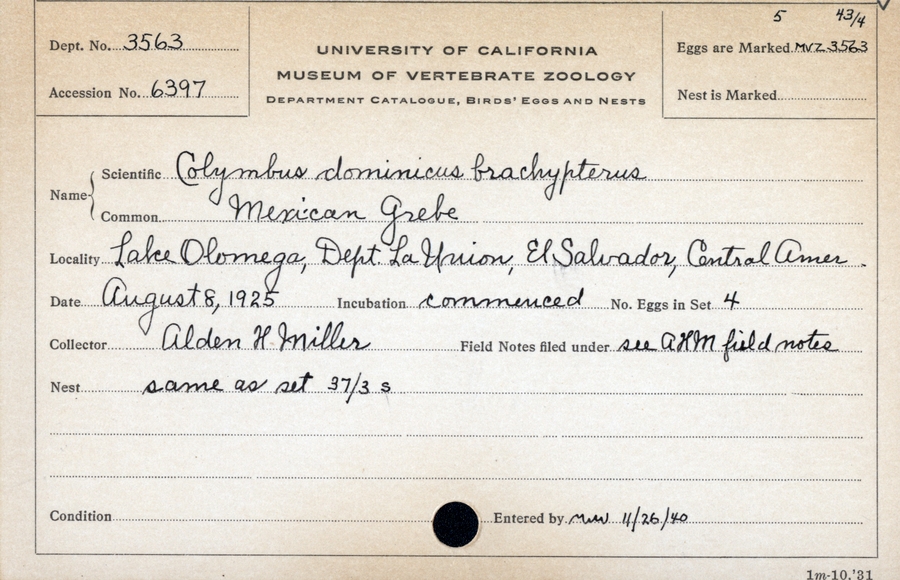 5 43/4
Dept. No. 3563
UNIVERSITY OF CALIFORNIA
Eggs are Marked MVZ 3563
MUSEUM OF VERTEBRATE ZOOLOGY
Accession No. 6397
DEPARTMENT CATALOGUE, BIRDS' EGGS AND NESTS
Nest is Marked
Name { Scientific Colymbus dominicus brachypterus
Common Mexican Grebe
Locality Lake Olomega, Dept. La Union, El Salvador, Central Amer.
Date August 8, 1925 Incubation commenced No. Eggs in Set 4
Collector Alden H. Miller Field Notes filed under see AHM field notes
Nest same as set 37/3 s
Condition Entered by 11/26/40
1m-10,'31